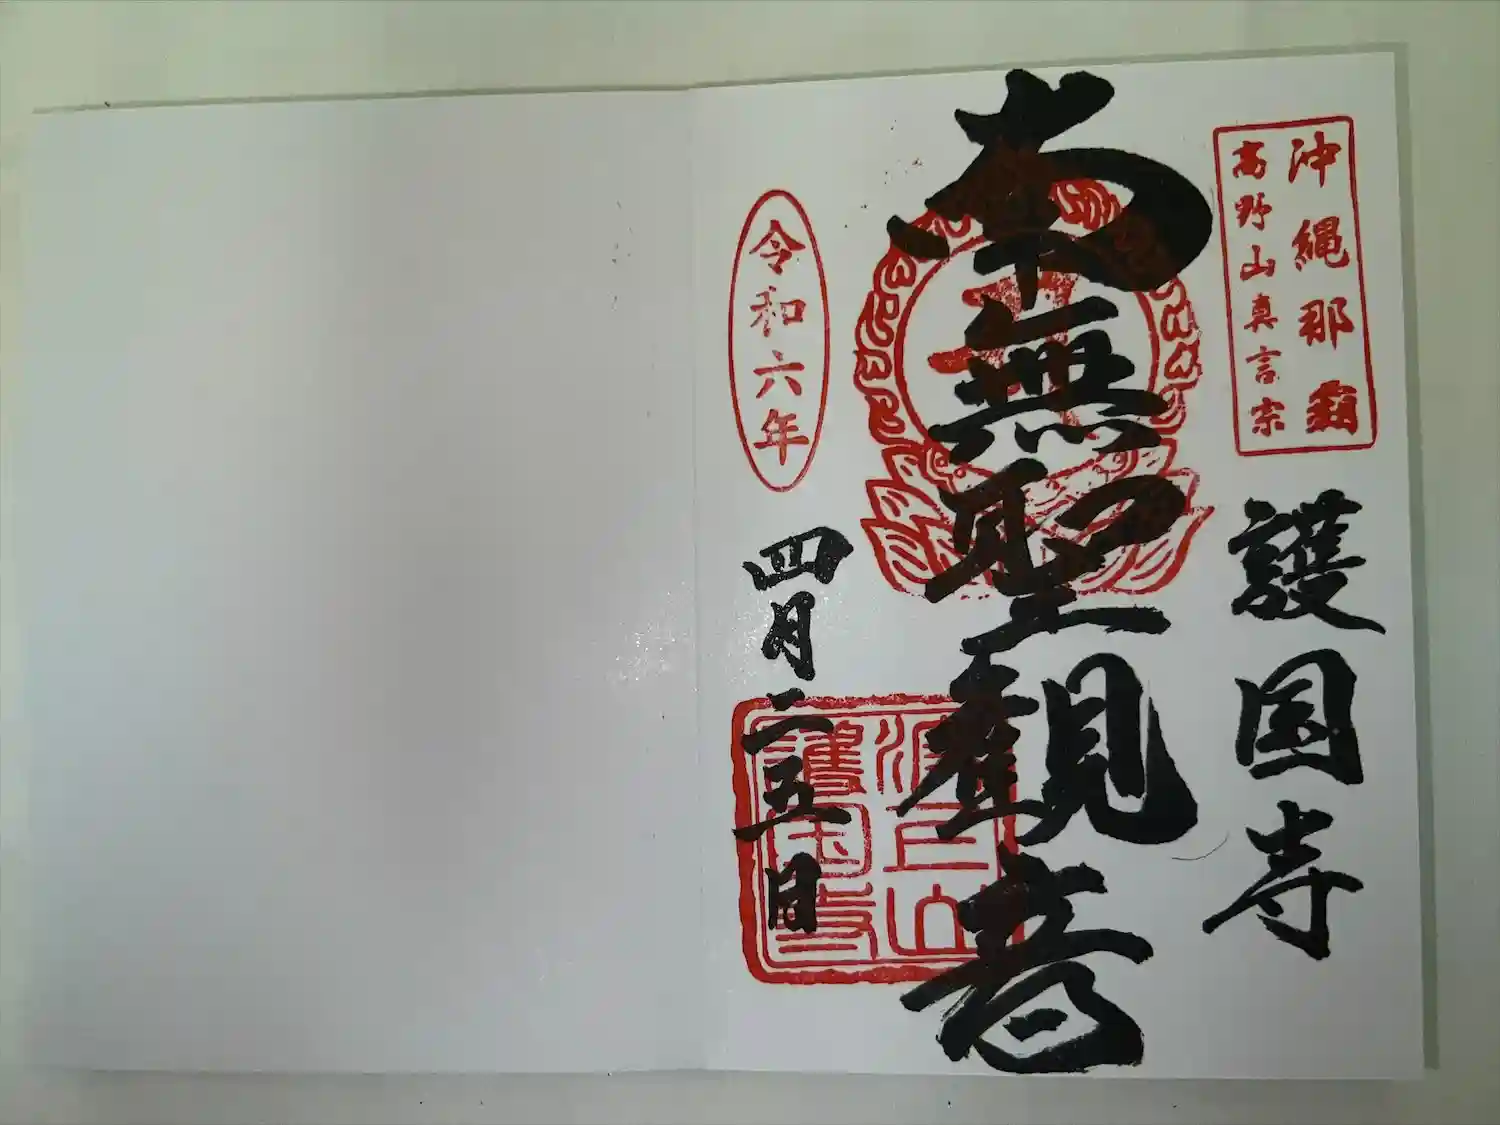 沖縄那覇
高野山真言宗
護国寺
南無聖観音
令和六年
四月二五日
波上山
護国寺